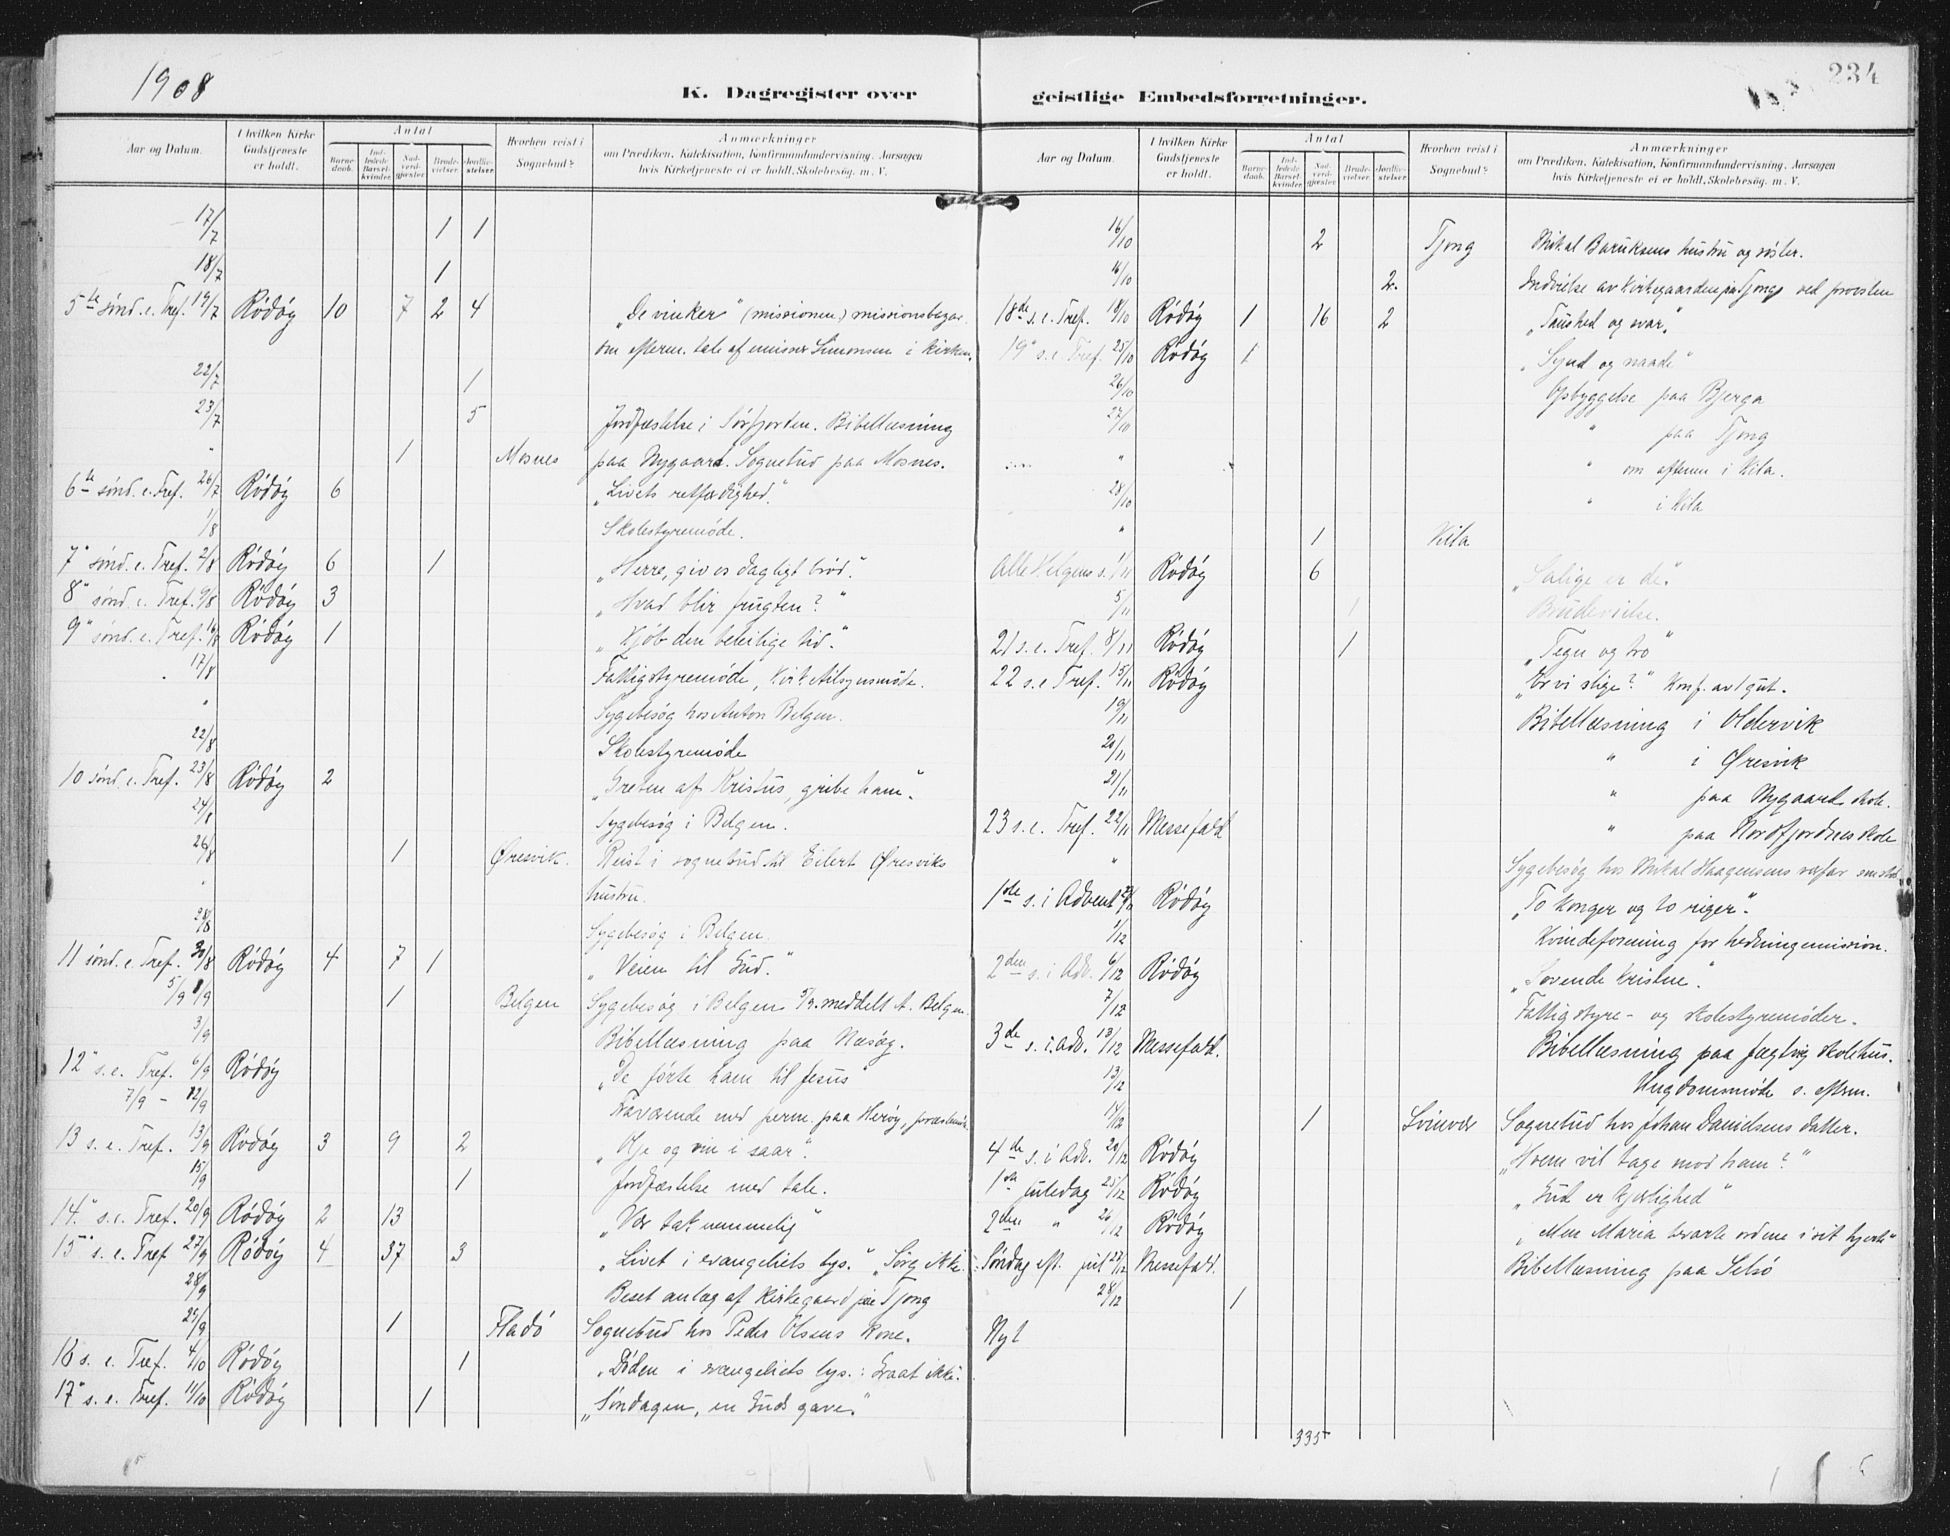 1908
K. Dagregister over
Aar og Datum.
I hvilken Kirke Gudstjeneste er holdt.
Antal
Barnedaab.
Indledede Barselkvinder.
Nadverdgjester
Brudevielser.
Jordfæstelser
Hvorhen reist i Sognebud?
Anmærkninger
om Prædiken, Katekisation, Konfirmandundervisning, Aarsagen
hvis Kirketjeneste ei er holdt, Skolebesøg. m. V.
17/7 1 1
18/7 1
5te sønd. e. Tref. 19/7 Rödöy 10 7 2 4 "De vinker" (missionen) missionsbazar
om efterm. tale af emissær Simonsen i kirken.
22/7 1
23/7 5 Jordfæstelse i Sörfjorden. Bibellæsning
" 1 Mosnes paa Nygaard. Sognebud paa Mosnes.
6te sønd. e. Tref. 26/7 Rödöy 6 "Livets retfærdighed."
1/8 Skolestyremøde.
7" sønd. e. Tref. 2/8 Rödöy 6 1 "Herre, giv os dagligt brød".
8" sønd. e. Tref. 9/8 Rödöy 3 "Hvad blir frugten?"
9" sønd. e. Tref. 16/8 Rödöy 1 "Kjöb den beleilige tid."
17/8 Fattigstyremøde, kirketilsynsmöde.
" Sygebesög hos Anton Belgen.
22/8 Skolestyremöde
10 sønd. e. Tref. 23/8 Rödöy 2 "Greten af Kristus, gribe ham".
24/8 Sygebesög i Belgen.
26/8 1 Øresvik. Reist i sognebud til Eilert Øresviks
" hustru.
28/8 Sygebesög i Belgen
11 sønd. e. Tref. 30/8 Rödöy 4 7 1 "Veien til Gud."
5/9 8/9 1 Belgen Sygebesög i Belgen 5/9. meddelt A. Belgen.
3/9 Bibellæsning paa Næsöy.
12" s. e. Tref. 6/9 Rödöy "De förte ham til Jesus"
7/9 - 12/9 Fraværende med perm. paa Heröy,
13 s. e. Tref. 13/9 Rödöy 3 9 2 "Olje og vin i saar".
15/9 1 Jordfæstelse med tale.
14." s. e. Tref. 20/9 Rödöy 2 13 "Vær taknemmelig"
15" s. e. Tref 27/9 Rödöy 4 37 3 "Livet i evangeliets lys." "Sørg ikke."
28/9 Beset anlæg af kirkegaard paa Tjong
29/9 1 Fladö Sognebud hos Peder Olsens kone.
16 s. e. Tref. 4/10 Rödöy 1 "Döden i evangeliets lys.: Graat ikke."
17" s. e. Tref. 11/10 Rödöy 1 "Söndagen, en Guds gave."
234
geistlige Embedsforretninger.
Aar og Datum.
I hvilken Kirke Gudstjeneste er holdt.
Antal
Barnedaab.
Indledede Barselkvinder.
Nadverdgjester
Brudevielser.
Jordfæstelser
Hvorhen reist i Sognebud?
Anmærkninger
om Prædiken, Katekisation, Konfirmandundervisning, Aarsagen
hvis Kirketjeneste ei er holdt, Skolebesøg. m. V.
16/10 2 Tjong Mikal Baruksens hustru og söster.
16/10 2. Indvielse av kirkegaarden paa Tjong ved provsten
18de s. e. Tref. 18/10 Rödöy 1 16 2 "Taushed og svar."
19" s. e. Tref. 25/10 Rödöy 1 "Synd og naade"
26/10 Opbyggelse paa Bjerga
27/10 " paa Tjong
" " om aftenen i Kila.
28/10 " i Kila
" 1 Kila
Alle Helgens s. 1/11 Rödöy 6 "Salige er de."
5/11 1 Brudevielse.
21 s. e. Tref. 8/11 Rödöy 1 "Tegn og tro"
22 s. e. Tref. 15/11 Rödöy "Er vi slige?" Konf. av 1 gut.
19/11 Bibellæsning i Oldervik
20/11 " i Øresvik
21/11 " paa Nygaard skole.
23 s. e. Tref. 22/11 Messefald " paa Nordfjordnes skole
" Sygebesög hos Mikal Haagensens
1ste s. i Advent 29/11 Rödöy "To konger og to riger".
1/12 Kvindeforening for hedningemission.
2den s. i Adv. 6/12 Rödöy "Sovende kristne".
7/12 Fattigstyre- og skolestyremøder.
3de s. i. adv. 13/12 Messefald. Bibellæsning paa Jegtvig skolehus.
13/12 Ungdomsmöde s. efterm.
14/12 1 Svinvær Sognebud hos Johan Danielsens datter.
4de s. i Adv. 20/12 Rödöy "Hvem vil tage mod ham?"
1ste juledag 25/12 Rödöy "Gud er kjærlighed"
2den " 26/12 Rödöy "Men Maria bevarte ordene i sit hjerte"
Söndag eft. jul 27/12 Messefald. Bibellæsning paa Selsö
28/12 1
Nyt
335